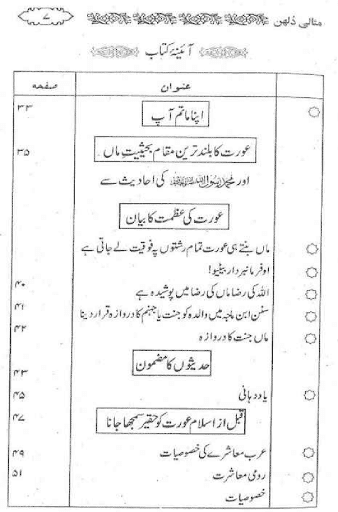 مثالی دُلهن ۷
آئینۂ کتاب
عنوان صفحہ
اپنا ماتم آپ ۳۳
عورت کا بلند ترین مقام بحیثیتِ ماں ۳۵
اور محمد رسول اللہ ﷺ کی احادیث سے
عورت کی عظمت کا بیان
ماں بنتے ہی عورت تمام رشتوں پہ فوقیت لے جاتی ہے
او فرمانبردار بیٹیو!
اللہ کی رضا ماں کی رضا میں پوشیدہ ہے ۴۰
سنن ابن ماجہ میں والدہ کو جنت یا جہنم کا دروازہ قرار دینا ۴۱
ماں جنت کا دروازہ ۴۲
حدیثوں کا مضمون ۴۳
یاد دہانی ۴۵
قبل از اسلام عورت کو حقیر سمجھا جانا ۴۷
عرب معاشرے کی خصوصیات ۴۹
رومی معاشرت ۵۱
خصوصیات